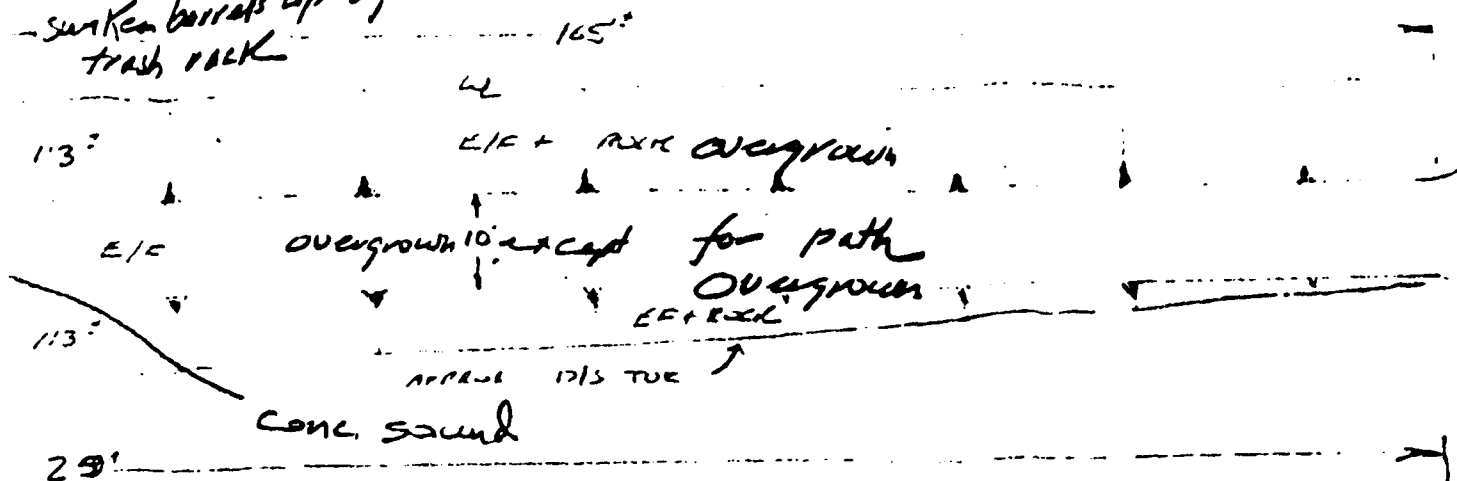 - sunken barrels up by
trash rack
165'±
WL
1:3±
E/F + ROCK overgrown
E/F
overgrown 10' except for path
overgrown
1:3±
E/F + ROCK
APPROX D/S TOE
Conc. sound